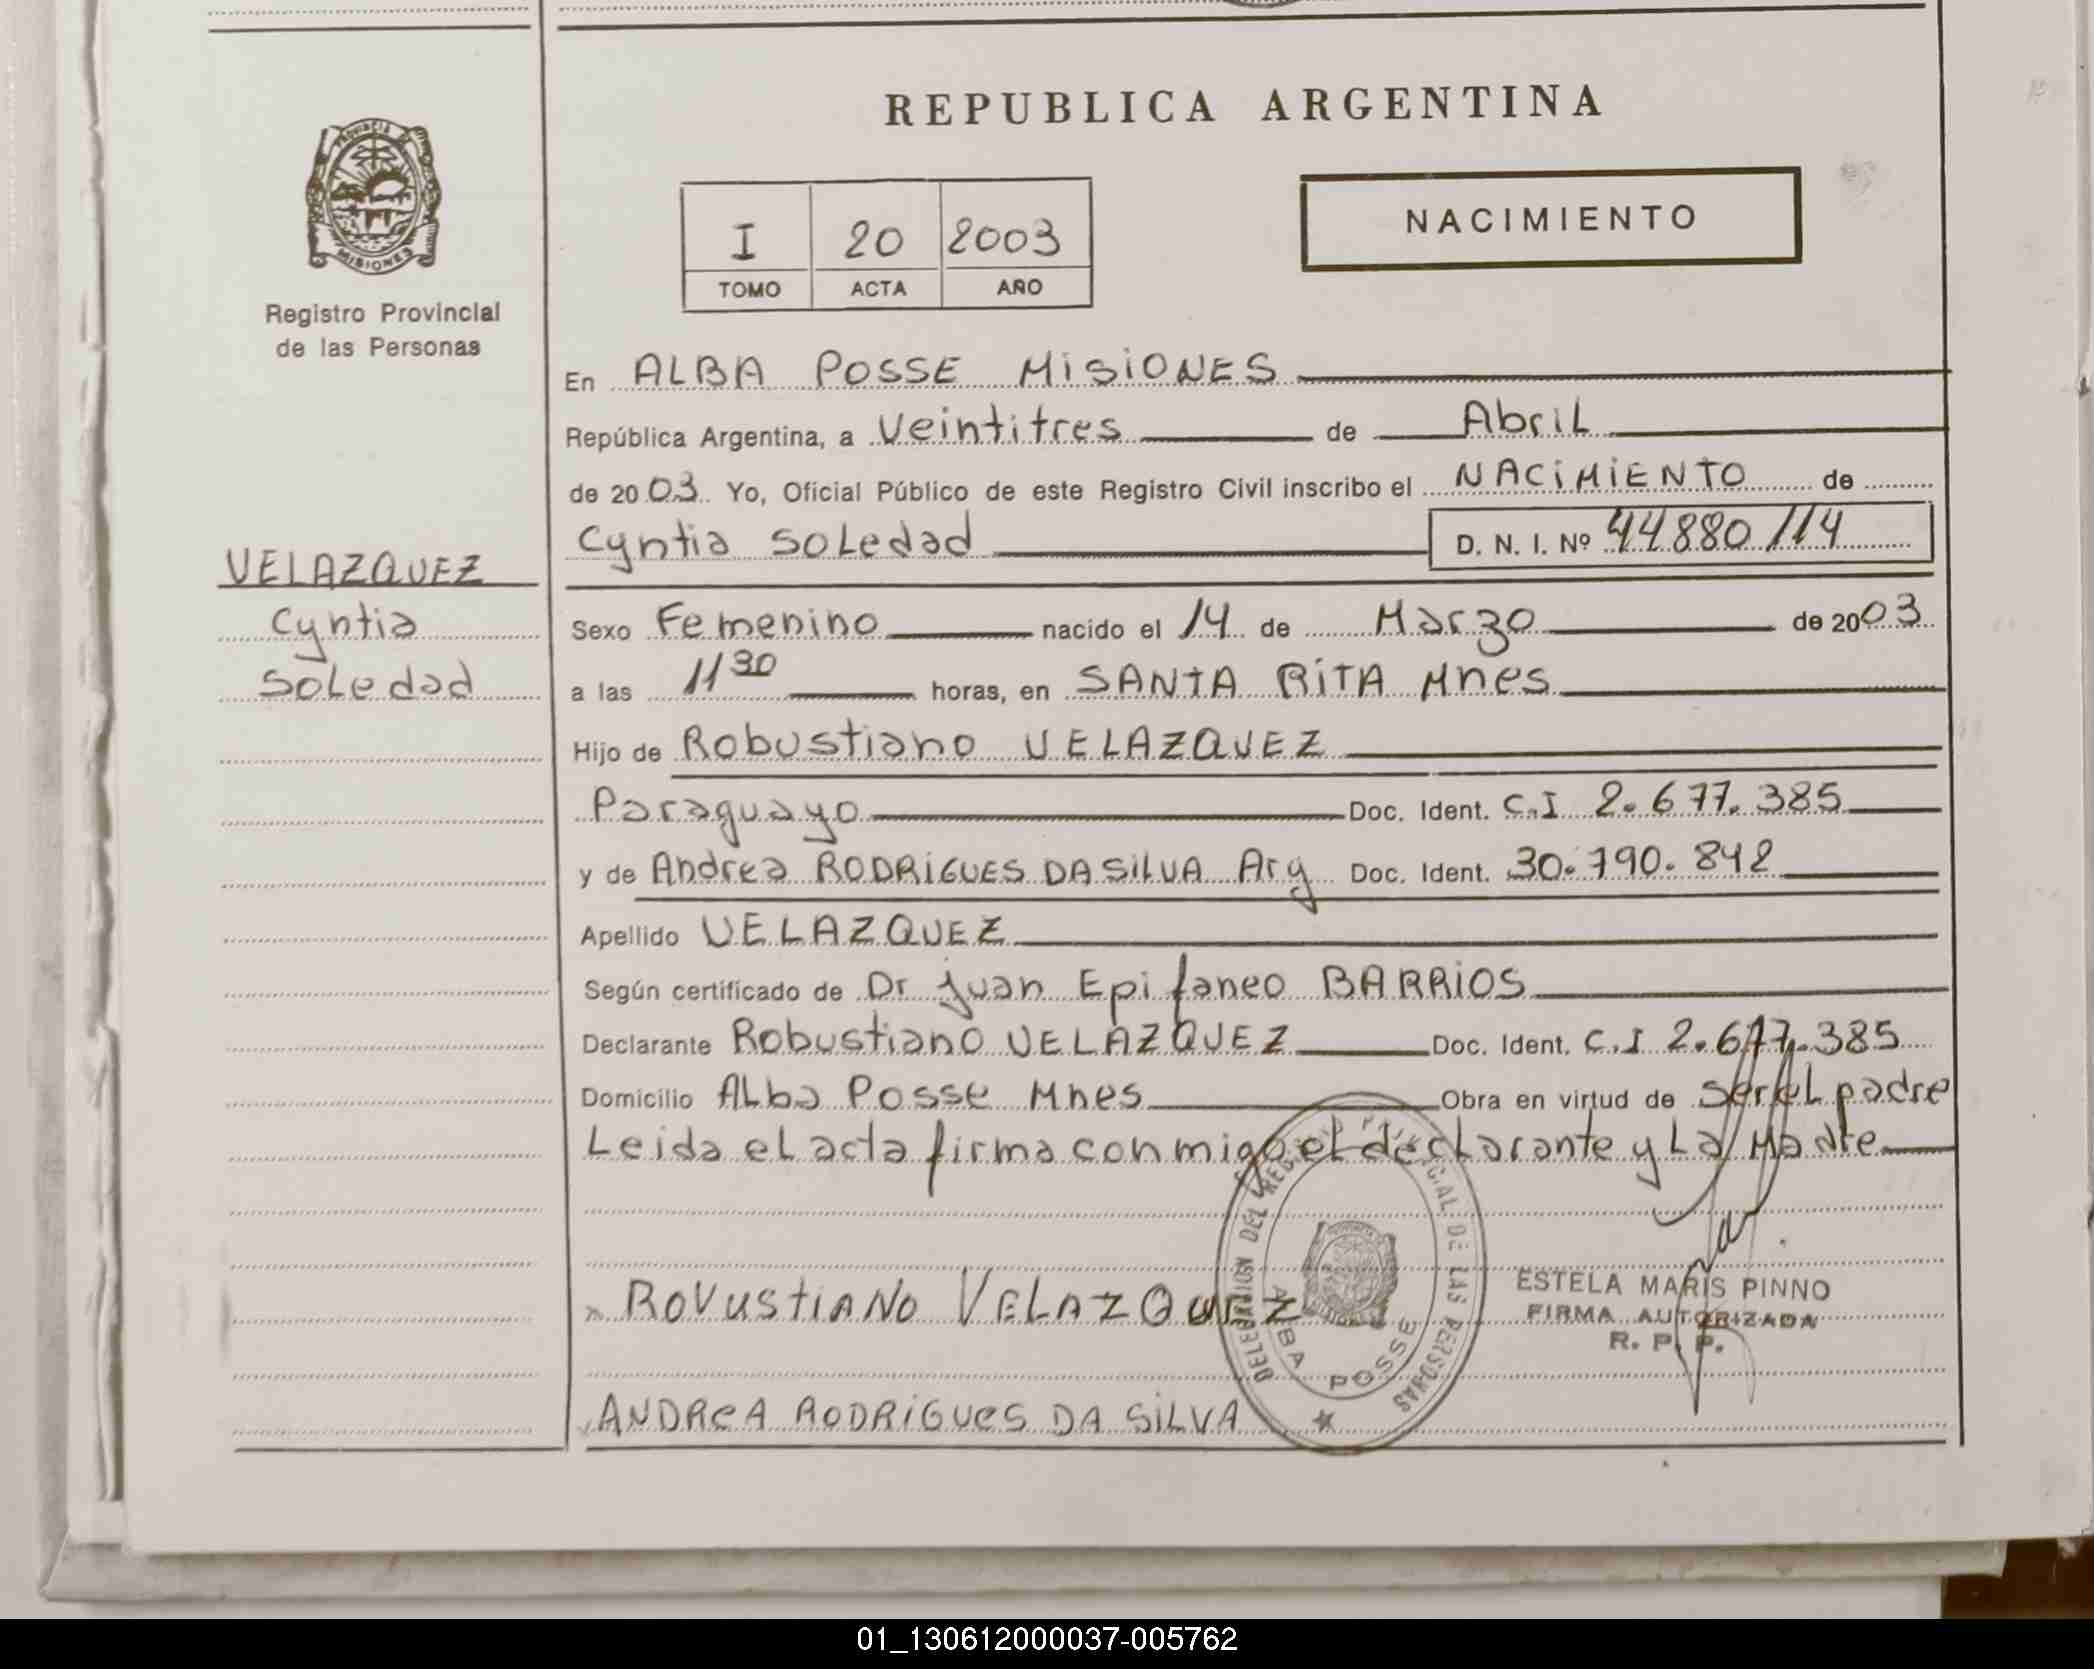 REPUBLICA ARGENTINA
PROVINCIA DE
MISIONES
Registro Provincial
de las Personas
I 20 2003
TOMO ACTA AÑO
NACIMIENTO
En ALBA POSSE MiSiONES
República Argentina, a Veintitres de Abril
de 20 03 Yo, Oficial Público de este Registro Civil inscribo el NACiMiENTO de
Cyntia SoLedad D. N. I. Nº 44.880 114
VELAZQUEZ
Cyntia
SoLedad
Sexo Femenino nacido el 14 de Marzo de 20 03
a las 11 30 horas, en SANTA RiTA Mnes
Hijo de Robustiano VELAZQUEZ
Paraguayo Doc. Ident. C.I 2.677.385
y de Andrea RODRiGUES DA SiLVA Arg Doc. Ident. 30.790.842
Apellido VELAZQUEZ
Según certificado de Dr Juan Epifaneo BARRiOS
Declarante Robustiano VELAZQUEZ Doc. Ident. C.I 2.677.385
Domicilio ALba Posse Mnes Obra en virtud de ser eL padre
Leida eL acta firma conmigo el decLarante y La Madre
DELEGACION DEL REGISTRO PROVINCIAL DE LAS PERSONAS
ALBA POSSE
ROVUSTiANO VELAZQUEZ
ESTELA MARIS PINNO
FIRMA AUTORIZADA
R. P. P.
ANDReA RODRiGUeS DA SiLVA
01_130612000037-005762